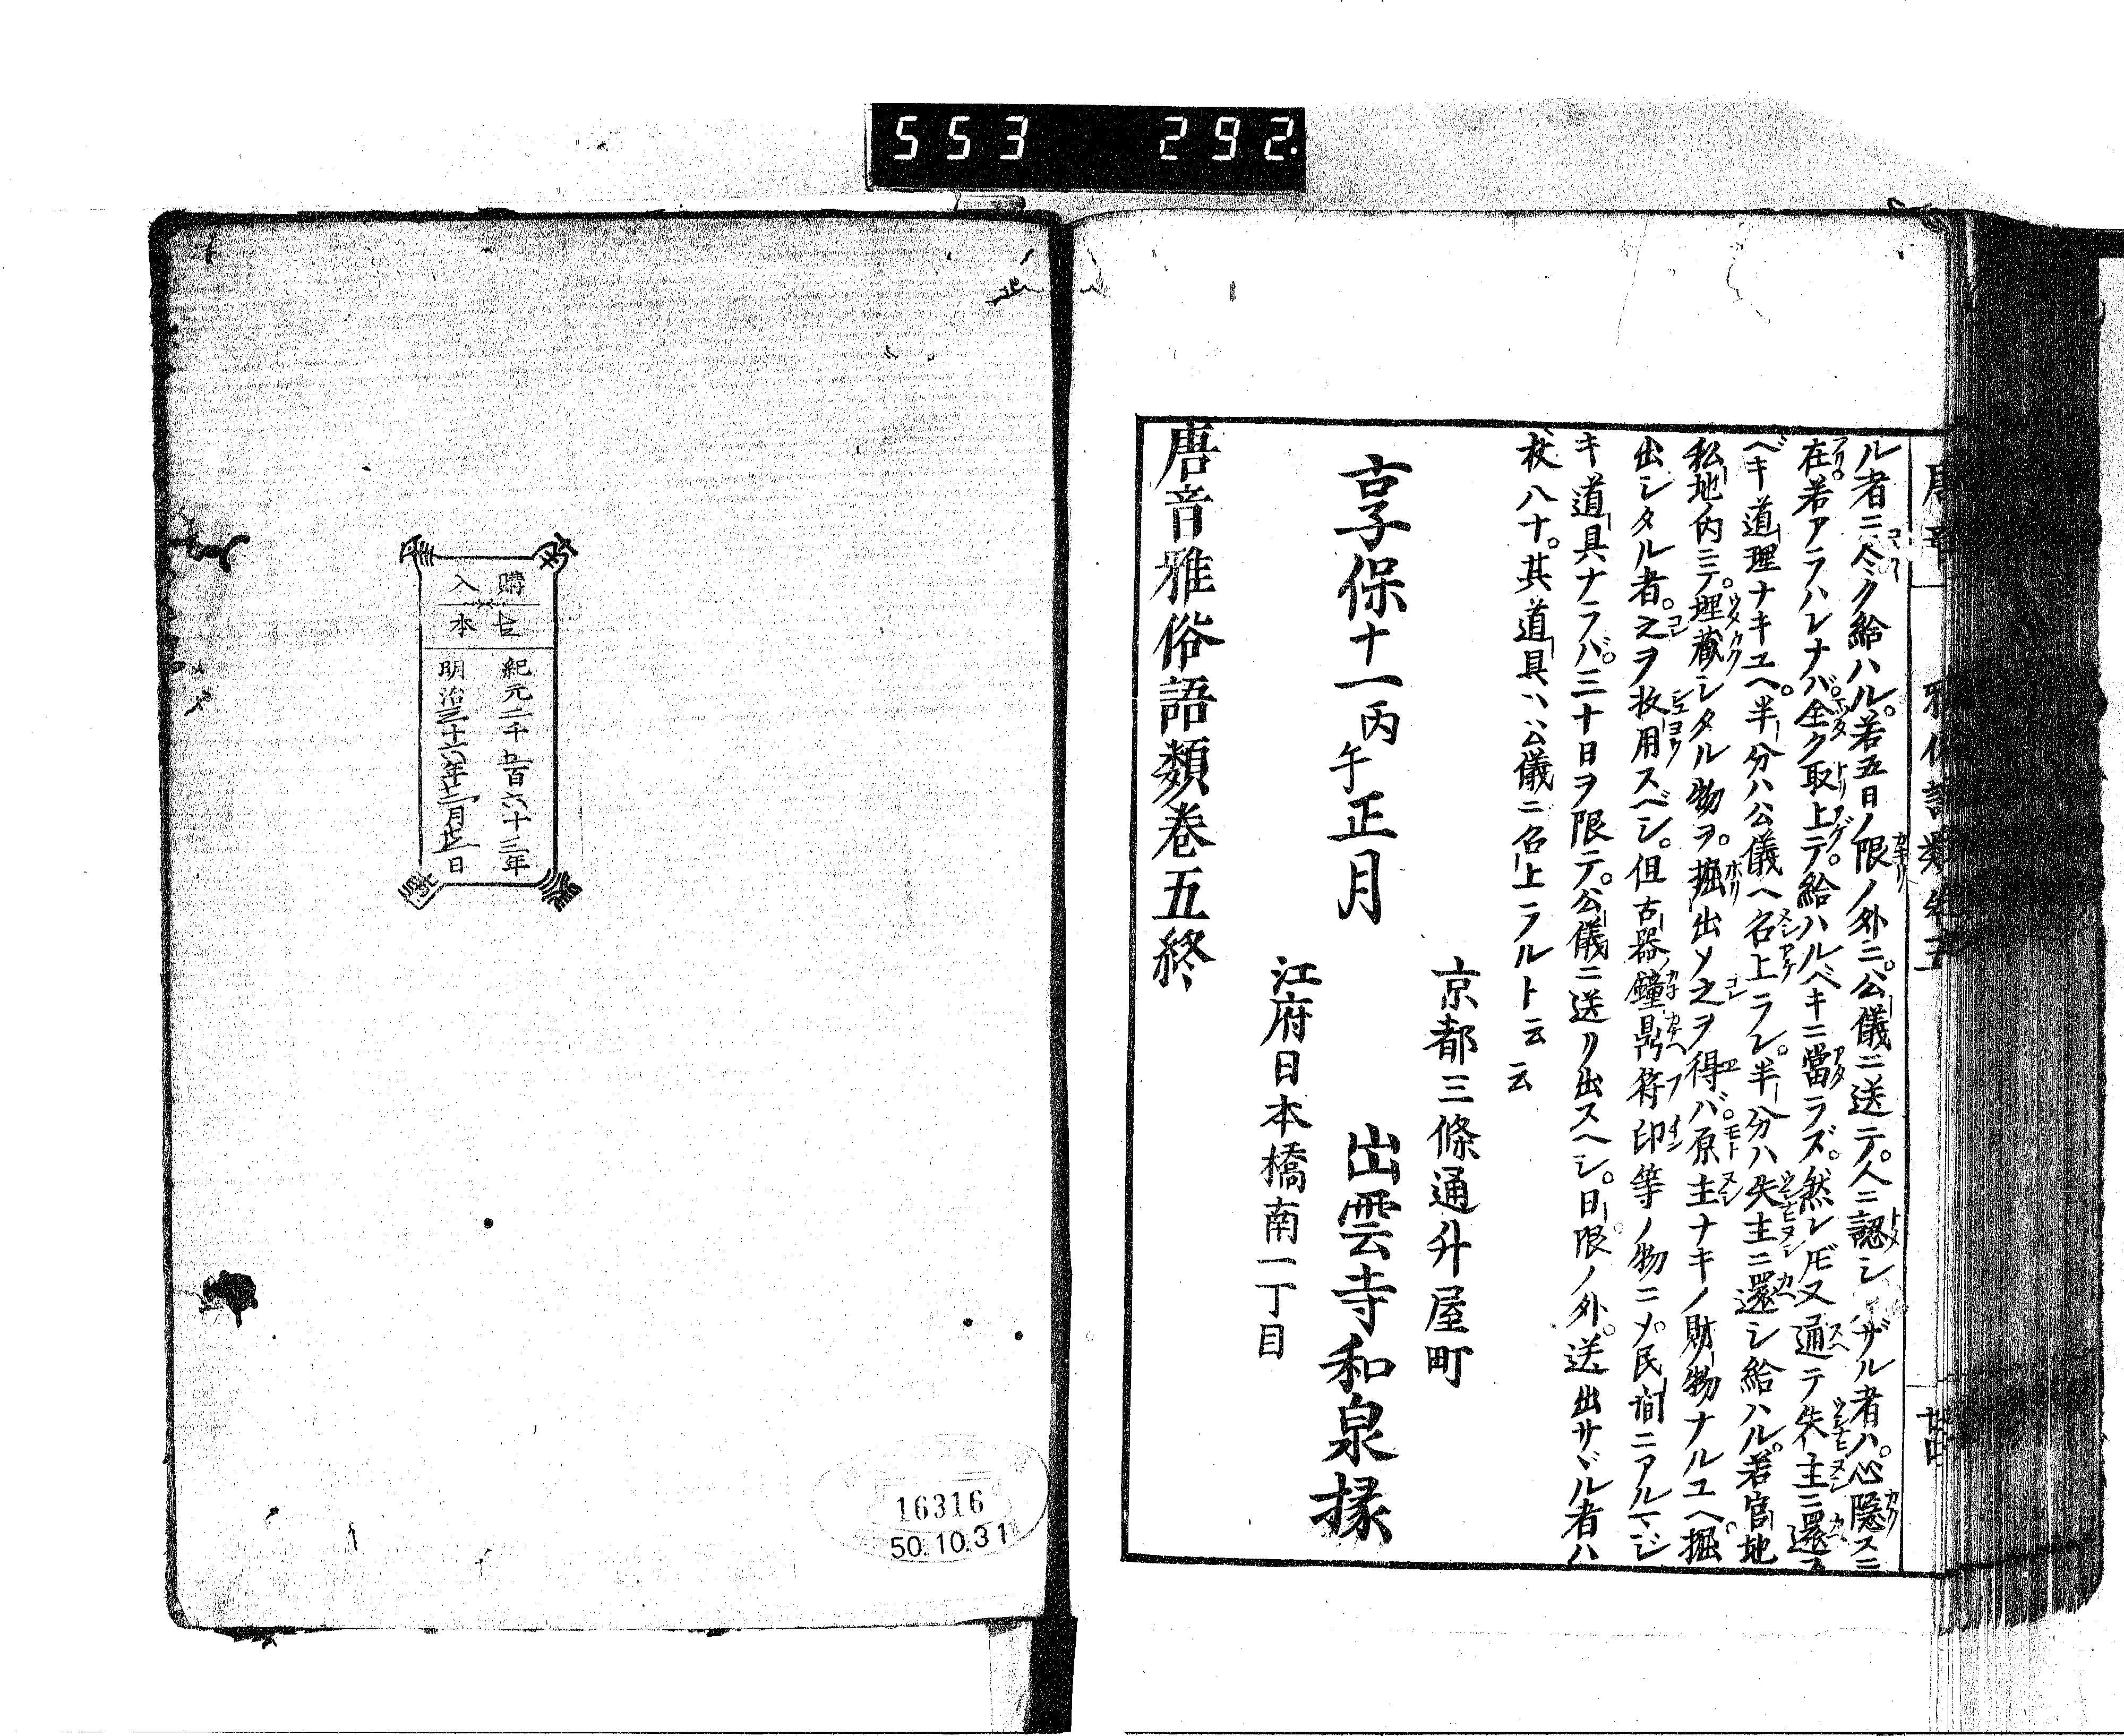 553 292.
ル者ニ尽ク給ハル。若五日ノ限ノ外ニ。公儀ニ送テ。人ニ認シザル者ハ。心隠スニ
在。若アラハレナバ。全ク取上テ。給ハルベキニ當ラズ。然レ𪜈又通テ失主ニ還ス
ベキ道理ナキユヘ。半分ハ公儀ヘ召上ラレ。半分ハ失主ニ還シ給ハル。若官地
私地内ニテ。埋蔵シタル物ヲ。掘出シ之ヲ得バ。原主ナキノ財物ナルユヘ。掘
出シタル者。之ヲ收用スベシ。但古器鐘鼎符印等ノ物ニメ。民間ニアルマジ
キ道具ナラバ。三十日ヲ限テ。公儀ニ送リ出スヘシ。日限ノ外。送出サヾル者ハ
杖八十。其道具ハ、公儀ニ召上ラルト云云
京都三條通升屋町
享保十一丙午正月 出雲寺和泉掾
江府日本橋南一丁目
唐音雅俗語類巻五終
購入
本
紀元二千五百六十三年
明治三十六年十二月 日
16316
50.10.31